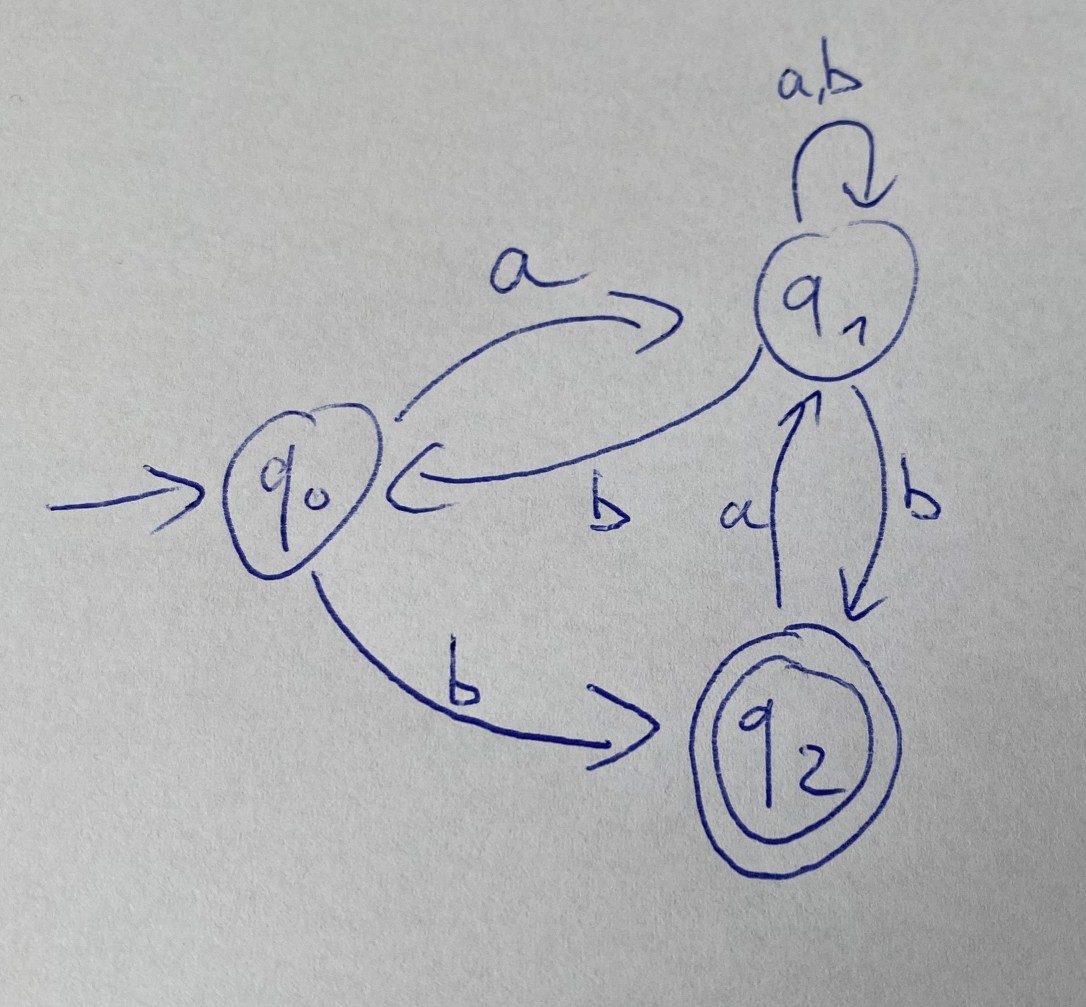 a,b
a
q₁
q₀
b
a
b
b
q₂